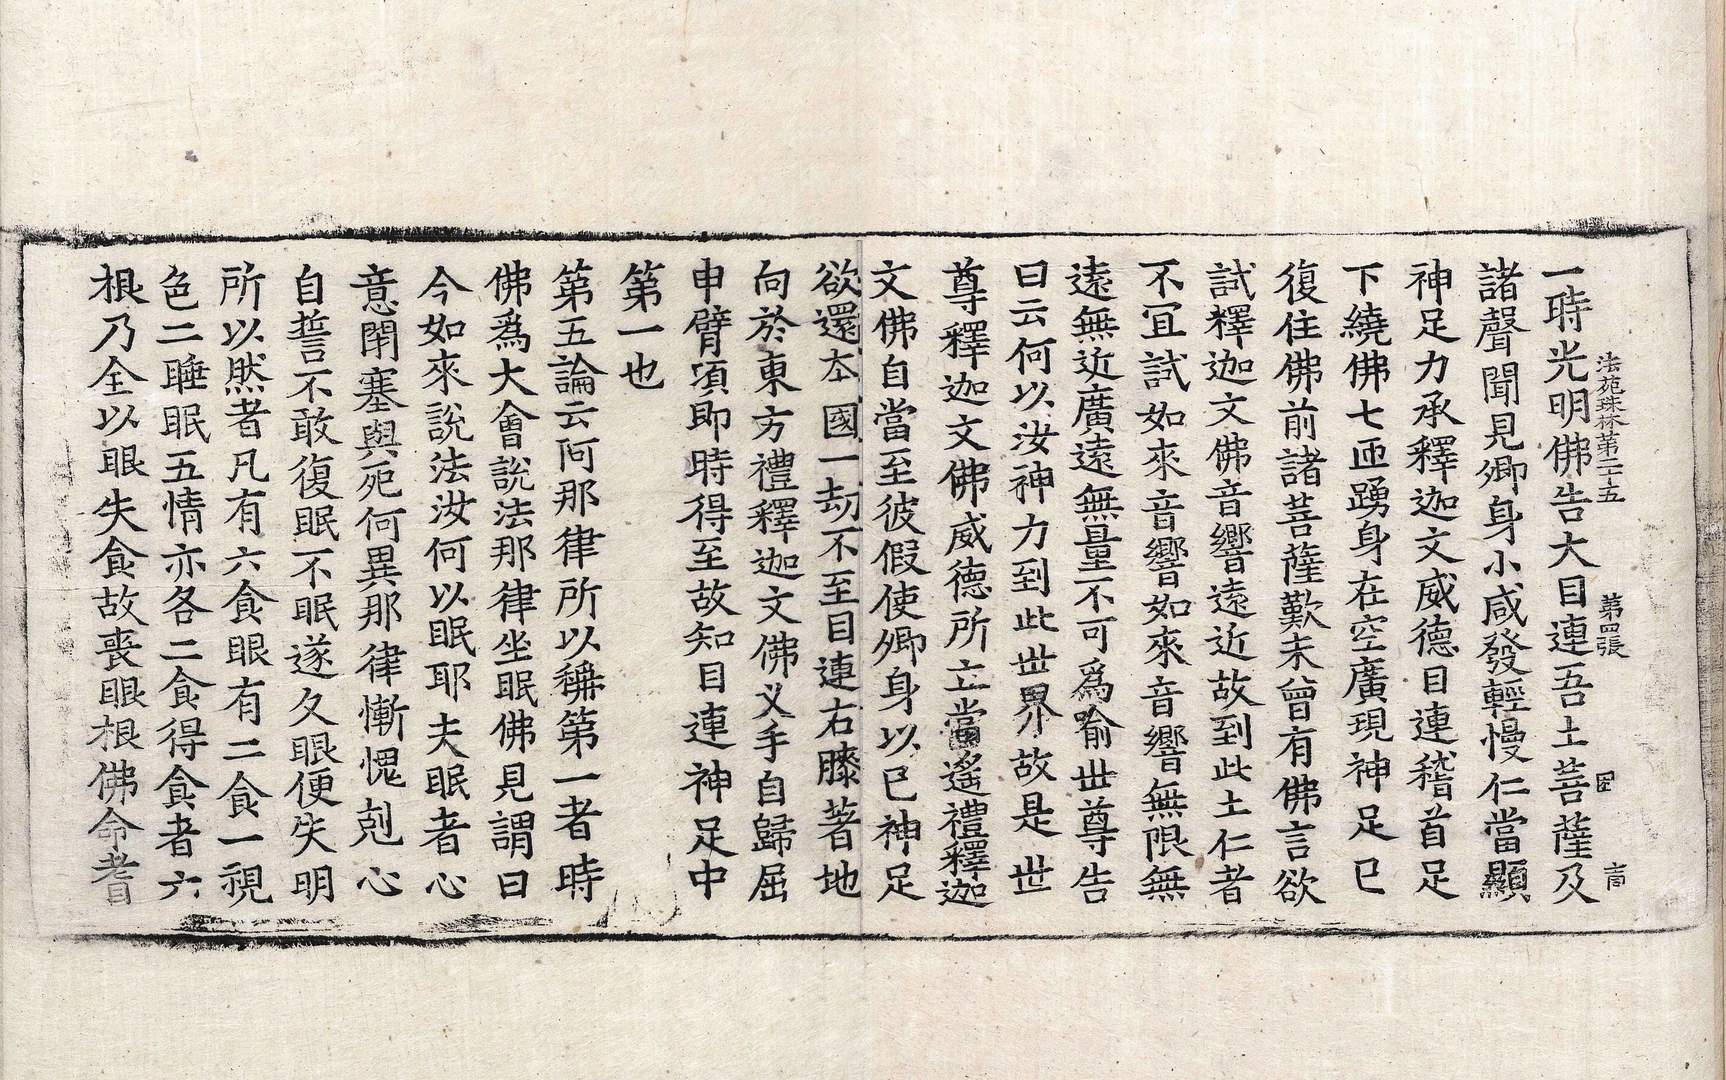 法苑珠林第二十五 第四張
一時光明佛告大目連吾土菩薩及
諸聲聞見卿身小咸發輕慢仁當顯
神足力承釋迦文威德目連稽首足
下繞佛七匝踊身在空廣現神足已
復住佛前諸菩薩歎未曾有佛言欲
試釋迦文佛音響遠近故到此土仁者
不冝試如來音響如來音響無限無
遠無近廣遠無量不可爲喻世尊告
曰云何以汝神力到此世界故是世
尊釋迦文佛威德所立當遙禮釋迦
文佛自當至彼假使卿身以已神足
欲還本國一劫不至目連右膝著地
向於東方禮釋迦文佛叉手自歸屈
申臂項即時得至故知目連神足中
第一也
第五論云阿那律所以稱第一者時
佛爲大會說法那律坐眠佛見謂曰
今如來說法汝何以眠耶夫眠者心
意閉塞與死何異那律慚愧剋心
自誓不敢復眠不眠遂久眼便失明
所以然者凡有六食眼有二食一視
色二睡眠五情亦各二食得食者六
根乃全以眼失食故喪眼根佛命耆